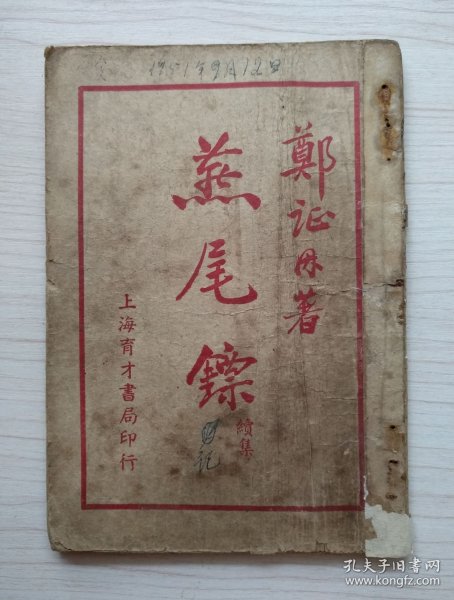 1951年9月12日
鄭証因著
燕尾鏢
續集
上海育才書局印行
孔夫子旧书网
www.kongfz.com